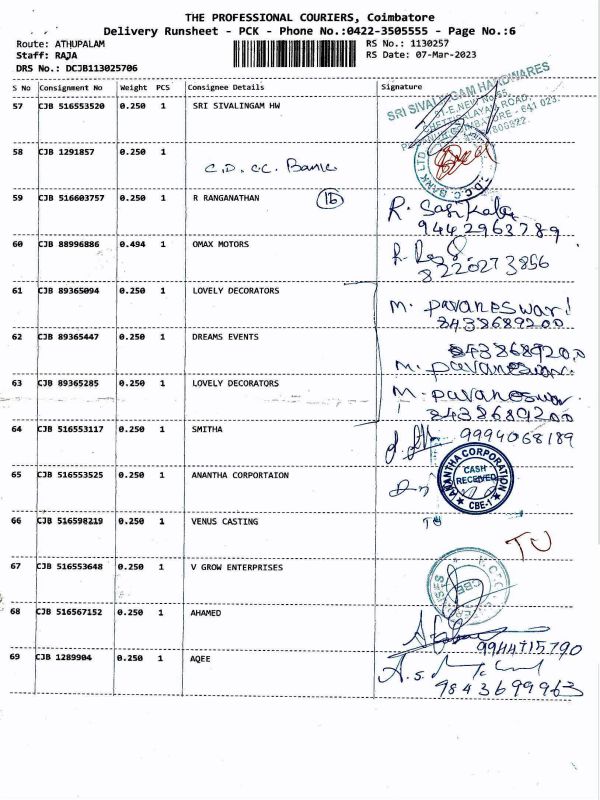 THE PROFESSIONAL COURIERS, Coimbatore
Delivery Runsheet - PCK - Phone No.:0422-3505555 - Page No.:6
Route: ATHUPALAM RS No.: 1130257
Staff: RAJA RS Date: 07-Mar-2023
DRS No.: DCJB113025706
S No Consignment No Weight PCS Consignee Details Signature
57 CJB 516553520 0.250 1 SRI SIVALINGAM HW
SRI SIVALINGAM HARDWARES
58 CJB 1291857 0.250 1
C.D.CC. Bank
59 CJB 516603757 0.250 1 R RANGANATHAN 16 R. Sasikala
9442963789
60 CJB 88996886 0.494 1 OMAX MOTORS
8220273856
61 CJB 89365094 0.250 1 LOVELY DECORATORS M. Pavaneswari
8438689200
62 CJB 89365447 0.250 1 DREAMS EVENTS 8438689200
M. Pavaneswari
63 CJB 89365285 0.250 1 LOVELY DECORATORS M. Pavaneswari
8438689200
64 CJB 516553117 0.250 1 SMITHA 9994068189
65 CJB 516553525 0.250 1 ANANTHA CORPORTAION
ANANTHA CORPORATION
CASH
RECEIVED
CBE-1
66 CJB 516598219 0.250 1 VENUS CASTING
67 CJB 516553648 0.250 1 V GROW ENTERPRISES
68 CJB 516567152 0.250 1 AHAMED
9944715790
69 CJB 1289904 0.250 1 AQEE
9843699963